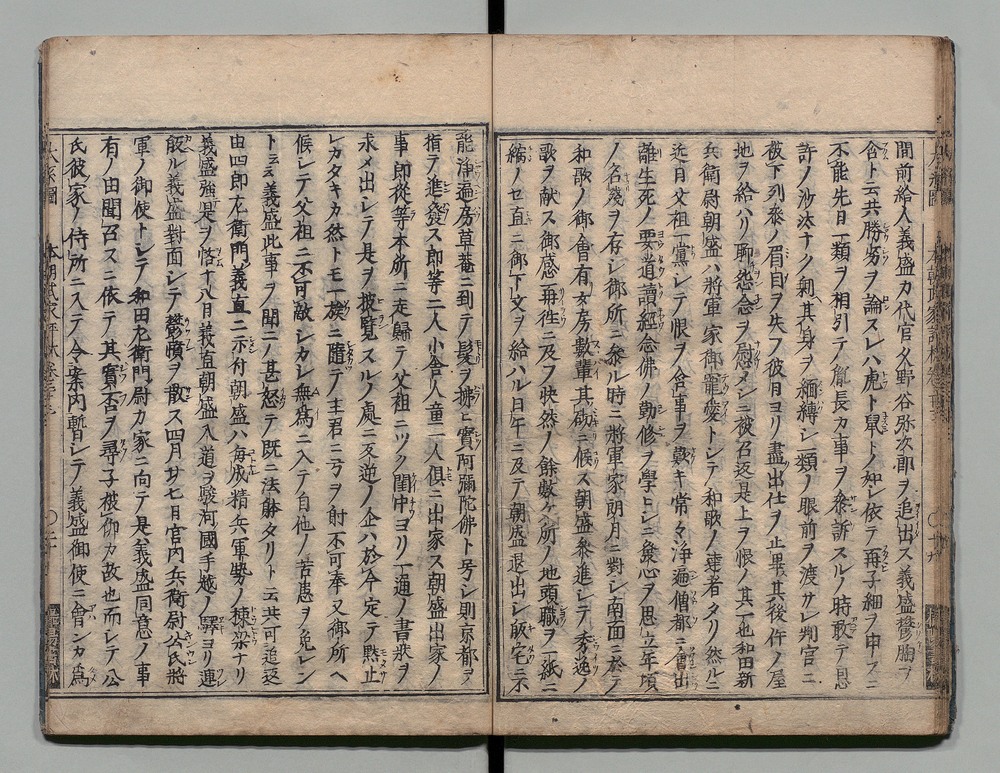 間前給人義盛カ代官久野谷弥次郎ヲ追出ス義盛欝胸ヲ
含ト云共勝劣ヲ論スレハ虎ト鼠トノ如レ依テ再子細ヲ申スニ
不能先日一類ヲ相引テ胤長カ事ヲ参訴スルノ時敢テ恩
許ノ沙汰ナク剰其身ヲ綑縛レ類ノ眼前ヲ渡サレ判官ニ
被下列参ノ眉目ヲ失フ彼日ヨリ盡出仕ヲ止畢其後件ノ屋
地ヲ給ハリ聊怨念ヲ慰メンニ被召返是上ヲ恨ノ其一也和田新
兵衛尉朝盛ハ將軍家御寵愛トレテ和歌ノ達者タリ然ルニ
近日父祖一黨レテ恨ヲ含事ヲ歎キ常々浄遍僧都ニ會出
離生死ノ要道讀經念佛ノ勤修ヲ學トレニ發心ヲ思立年頃
ノ名殘ヲ存レ御所ニ参ル時ニ將軍家朗月ニ對レ南面ニ於テ
和歌ノ御會有女房數輩其砌ニ候ス朝盛参進レテ秀逸ノ
歌ヲ献ス御感再徃ニ及フ快然ノ餘數ケ所ノ地頭職ヲ一紙ニ
縮ノセ直ニ御下文ヲ給ハル日午ニ及テ朝盛退出レ皈宅ニ不
能浄遍房草菴ニ到テ髪ヲ拂ヒ實阿彌陀佛ト号シ則京都ヲ
指テ進發ス郎等二人小舎人童一人俱ニ出家ス朝盛出家ノ
事郎從等本所ニ走歸テ父祖ニツク閨中ヨリ一通ノ書狀ヲ
求メ出レテ是ヲ披覧スルノ處ニ反逆ノ企ハ於今定テ黙止
レカタキカ然トモ一族ニ隨テ主君ニ弓ヲ射不可奉又御所ヘ
候レテ父祖ニ不可敵レカレ無為ニ入テ自他ノ苦患ヲ免レン
ト云々義盛此事ヲ聞ニノ甚怒テ既ニ法躰タリト云共可追返
由四郎左衛門義直ニ示付朝盛ハ毎成精兵軍勢ノ棟梁ナリ
義盛強是ヲ悋十八日義直朝盛入道ヲ駿河國手越ノ驛ヨリ連
皈ル義盛對面レテ欝憤ヲ散ス四月廿七日宮内兵衛尉公氏將
軍ノ御使トレテ和田左衛門尉カ家ニ向テ是義盛同意ノ事
有ノ由聞召スニ依テ其實否ヲ尋子被仰カ故也而レテ公
氏彼家ノ侍所ニ入テ令案内暫レテ義盛御使ニ會ンカ爲
本朝武家評林 卷三十三